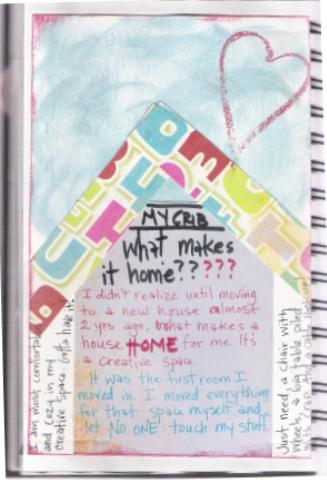 MY CRIB
What makes
it home?????
I didn't realize until moving
to a new house almost
2 yrs ago, what makes a
house HOME for me. It's
a creative space.
It was the first room I
moved in. I moved everything
for that space myself and
let NO ONE touch my stuff.
I am most comfortable
and cozy in my
creative space. Gotta have it!
Just need a chair with
wheels, a big table piled